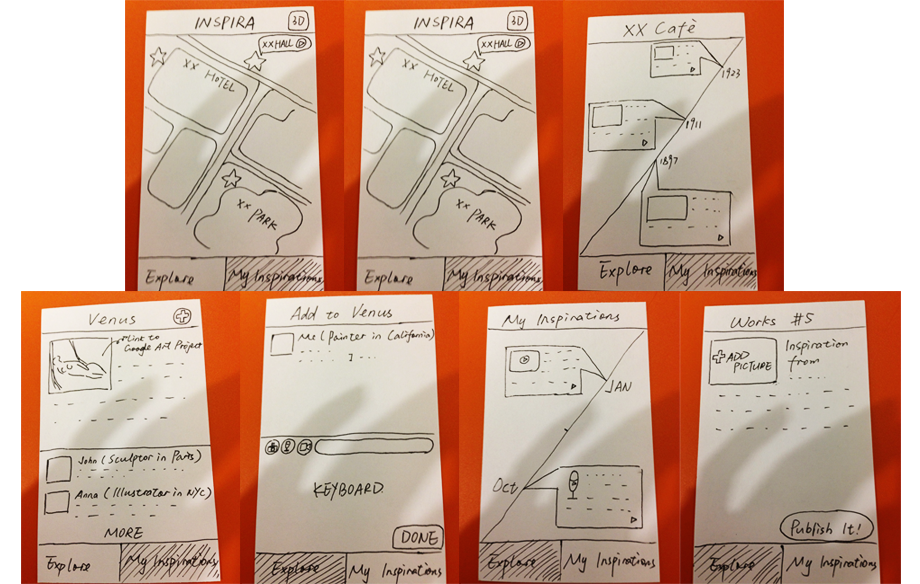 INSPIRA 3D
XX HALL
XX HOTEL
XX PARK
Explore My Inspirations
INSPIRA 3D
XX HALL
XX HOTEL
XX PARK
Explore My Inspirations
XX Cafè
1923
1911
1897
Explore My Inspirations
Venus
Link to
Google Art Project
John (Sculptor in Paris)
Anna (Illustrator in NYC)
MORE
Explore My Inspirations
Add to Venus
Me (Painter in California)
KEYBOARD
DONE
Explore My Inspirations
My Inspirations
JAN
Oct
Explore My Inspirations
Works #5
ADD
PICTURE
Inspiration
from
Publish It!
Explore My Inspirations